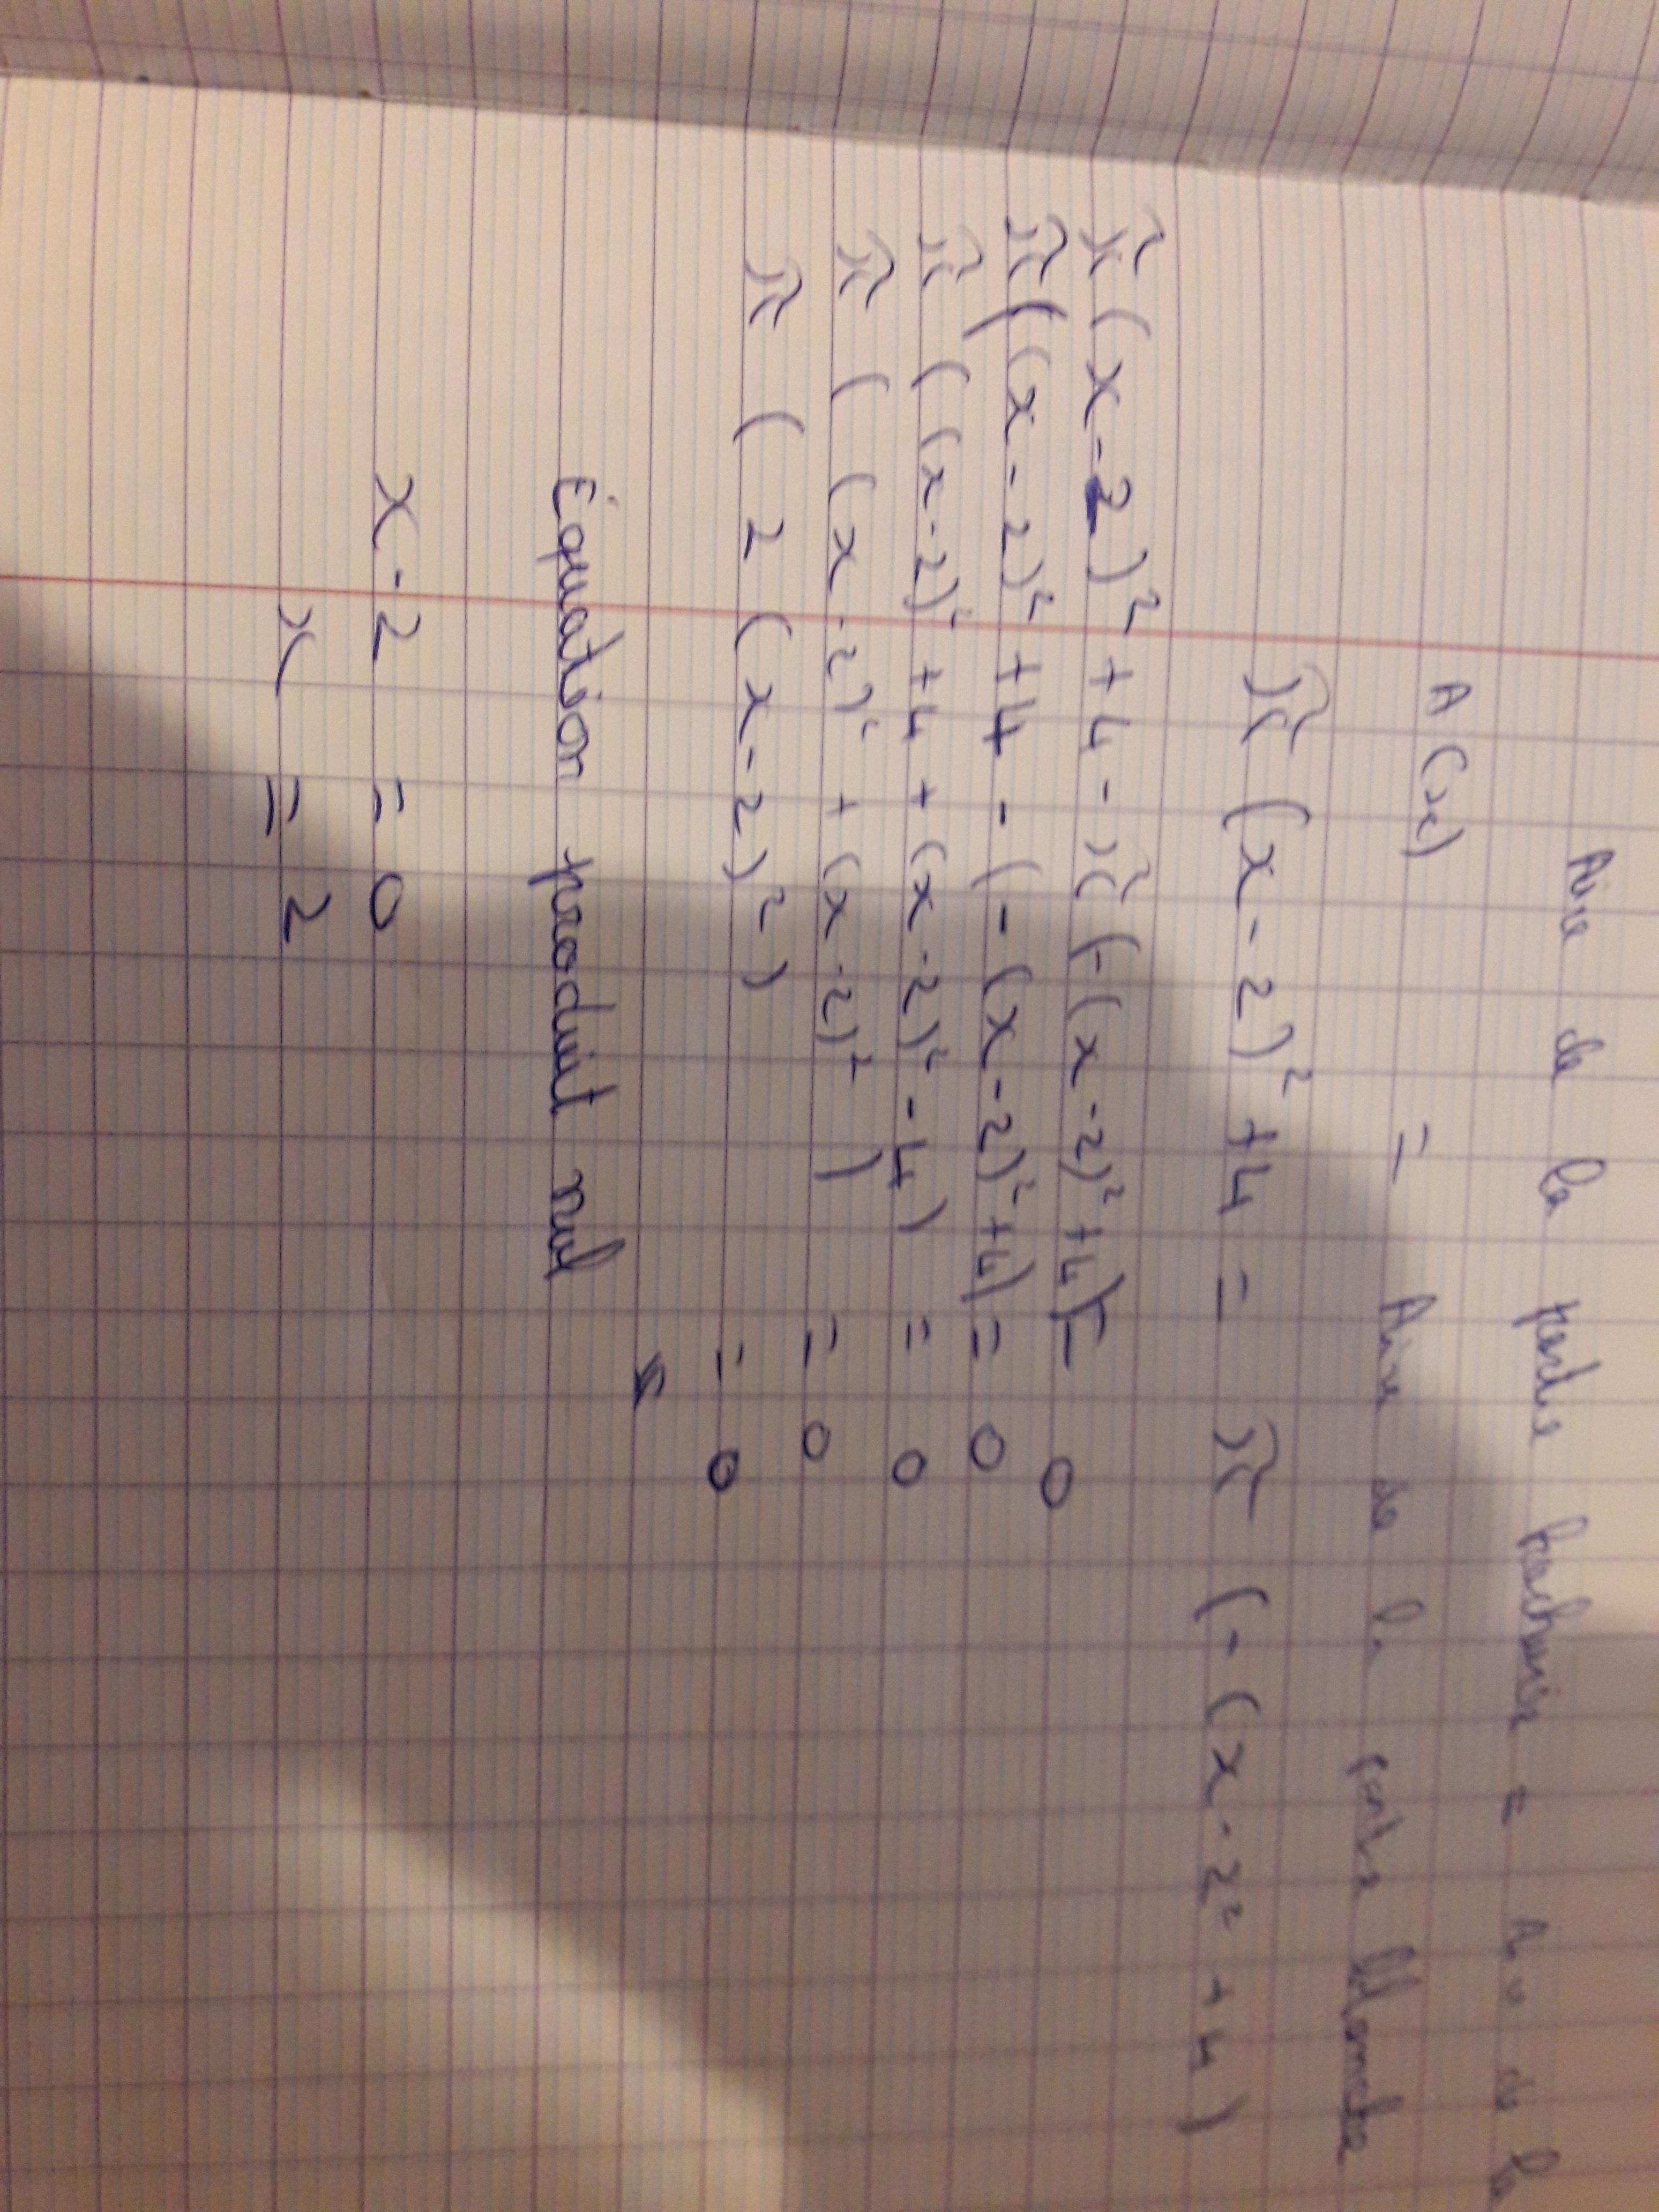 Aire de la partie hachurée = Aire de la
A(x) = Aire de la partie blanche
π (x-2)² + 4 = π (-(x-2² + 4)
π (x-2)² + 4 - π (-(x-2)² + 4) = 0
π ((x-2)² + 4 - (-(x-2)² + 4) = 0
π ((x-2)² + 4 + (x-2)² - 4) = 0
π ( (x-2)² + (x-2)² ) = 0
π ( 2 (x-2)² ) = 0
Équation produit nul
x-2 = 0
x = 2